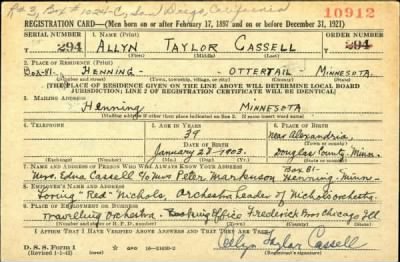 R# 3, Box # 1024-C, San Diego, California
REGISTRATION CARD—(Men born on or after February 17, 1897 and on or before December 31, 1921)
10912
SERIAL NUMBER
1. NAME (Print)
ORDER NUMBER
294
ALLYN TAYLOR CASSELL
294
(First) (Middle) (Last)
2. PLACE OF RESIDENCE (Print)
BOX-81- HENNING - OTTERTAIL - MINNESOTA.
(Number and street) (Town, township, village, or city) (County) (State)
[THE PLACE OF RESIDENCE GIVEN ON THE LINE ABOVE WILL DETERMINE LOCAL BOARD
JURISDICTION; LINE 2 OF REGISTRATION CERTIFICATE WILL BE IDENTICAL]
3. MAILING ADDRESS
Henning MINNESOTA
[Mailing address if other than place indicated on line 2. If same insert word same]
4. TELEPHONE
5. AGE IN YEARS
6. PLACE OF BIRTH
39
Near Alexandria,
DATE OF BIRTH
(Town or county)
January 27- 1903.
Douglas County-Minn-
(Exchange) (Number)
(Mo.) (Day) (Yr.)
(State or country)
7. NAME AND ADDRESS OF PERSON WHO WILL ALWAYS KNOW YOUR ADDRESS
BOX 81-
Mrs. Edna Cassell c/o Mrs Peter Markuson Henning-Minn-
8. EMPLOYER'S NAME AND ADDRESS
Loring "Red" Nichols, Orchestra Leader of Nichols Orchestra.
9. PLACE OF EMPLOYMENT OR BUSINESS
Travelling Orchestra- Booking Office Frederick Bros Chicago Ill
I AFFIRM THAT I HAVE VERIFIED ABOVE ANSWERS AND THAT THEY ARE TRUE.
D. S. S. Form 1
(Revised 1-1-42)
Allyn Taylor Cassell